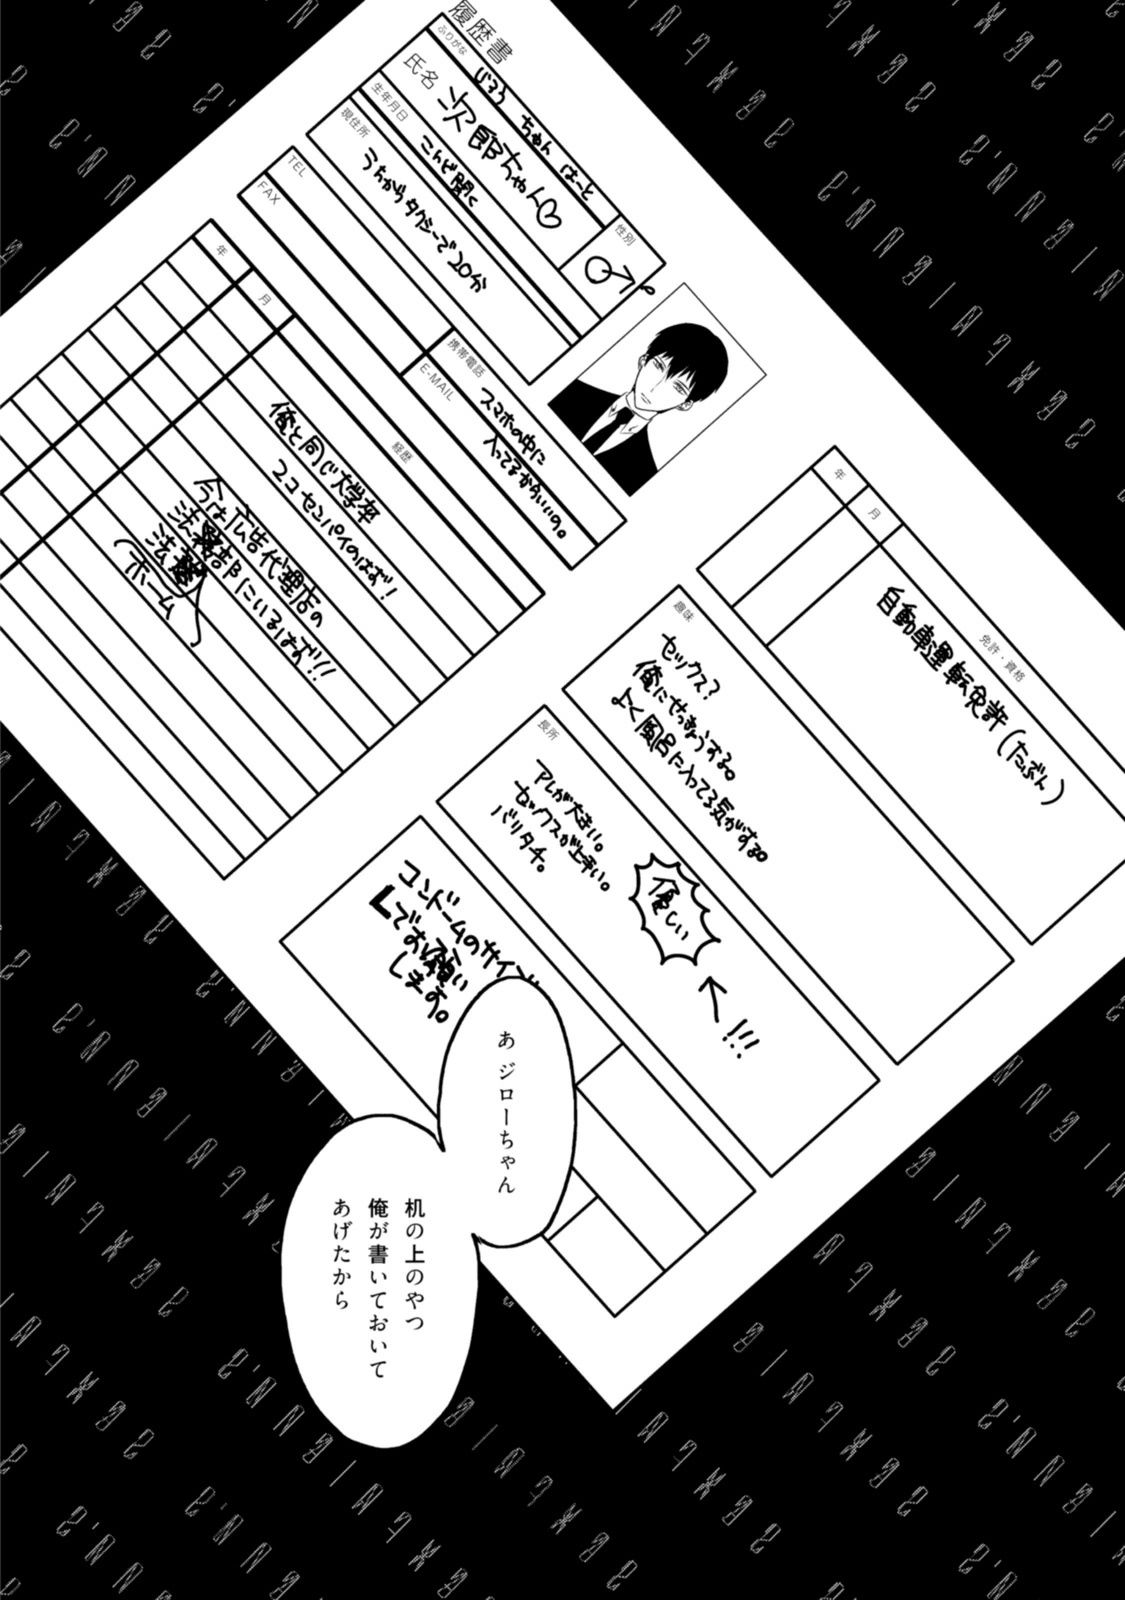 履歴書
ふりがな
じろう ちゃん はーと
氏名
次郎ちゃん♡
性別
生年月日
こんど聞く
現住所
うちからタクシーで20分
TEL
FAX
携帯電話
スマホの中に
入ってるからいいの。
E-MAIL
年
月
経歴
俺と同じ大学卒
2コ センパイのはず!
今は広告代理店の
法務部にいるはず!!
法
ホーム
年
月
免許・資格
自動車運転免許(たぶん)
趣味
セックス?
俺にせっきょうする。
風呂に入ってる気がする。
長所
アレが大きい。
セックスが上手い。
バリタチ。
優しい
!!!
コンドームのサイズ
Lでお願い
します。
あ ジローちゃん
机の上のやつ
俺が書いておいて
あげたから